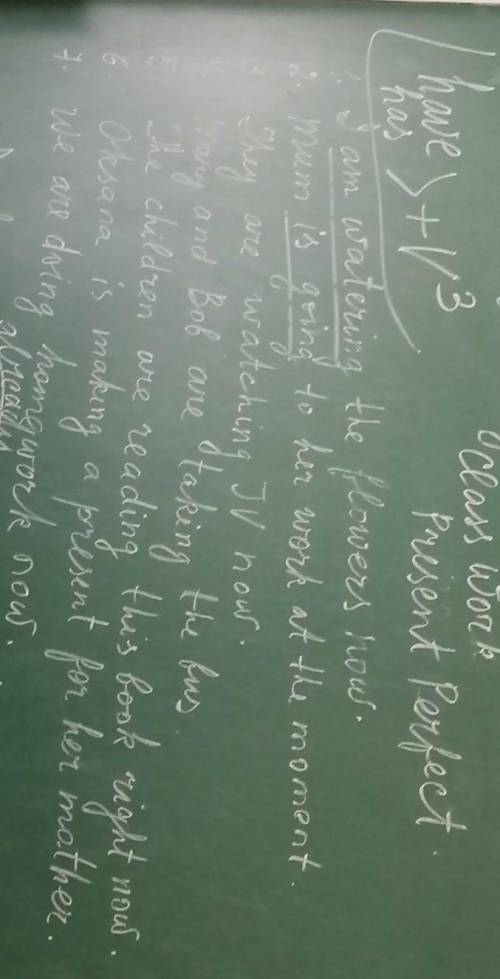 Class work
Present Perfect.
have
has > + V3
1. I am watering the flowers now.
2. Mum is going to her work at the moment.
3. They are watching TV now.
4. Mary and Bob are taking the bus.
5. The children are reading this book right now.
6. Oksana is making a present for her mather.
7. We are doing homework now.
already